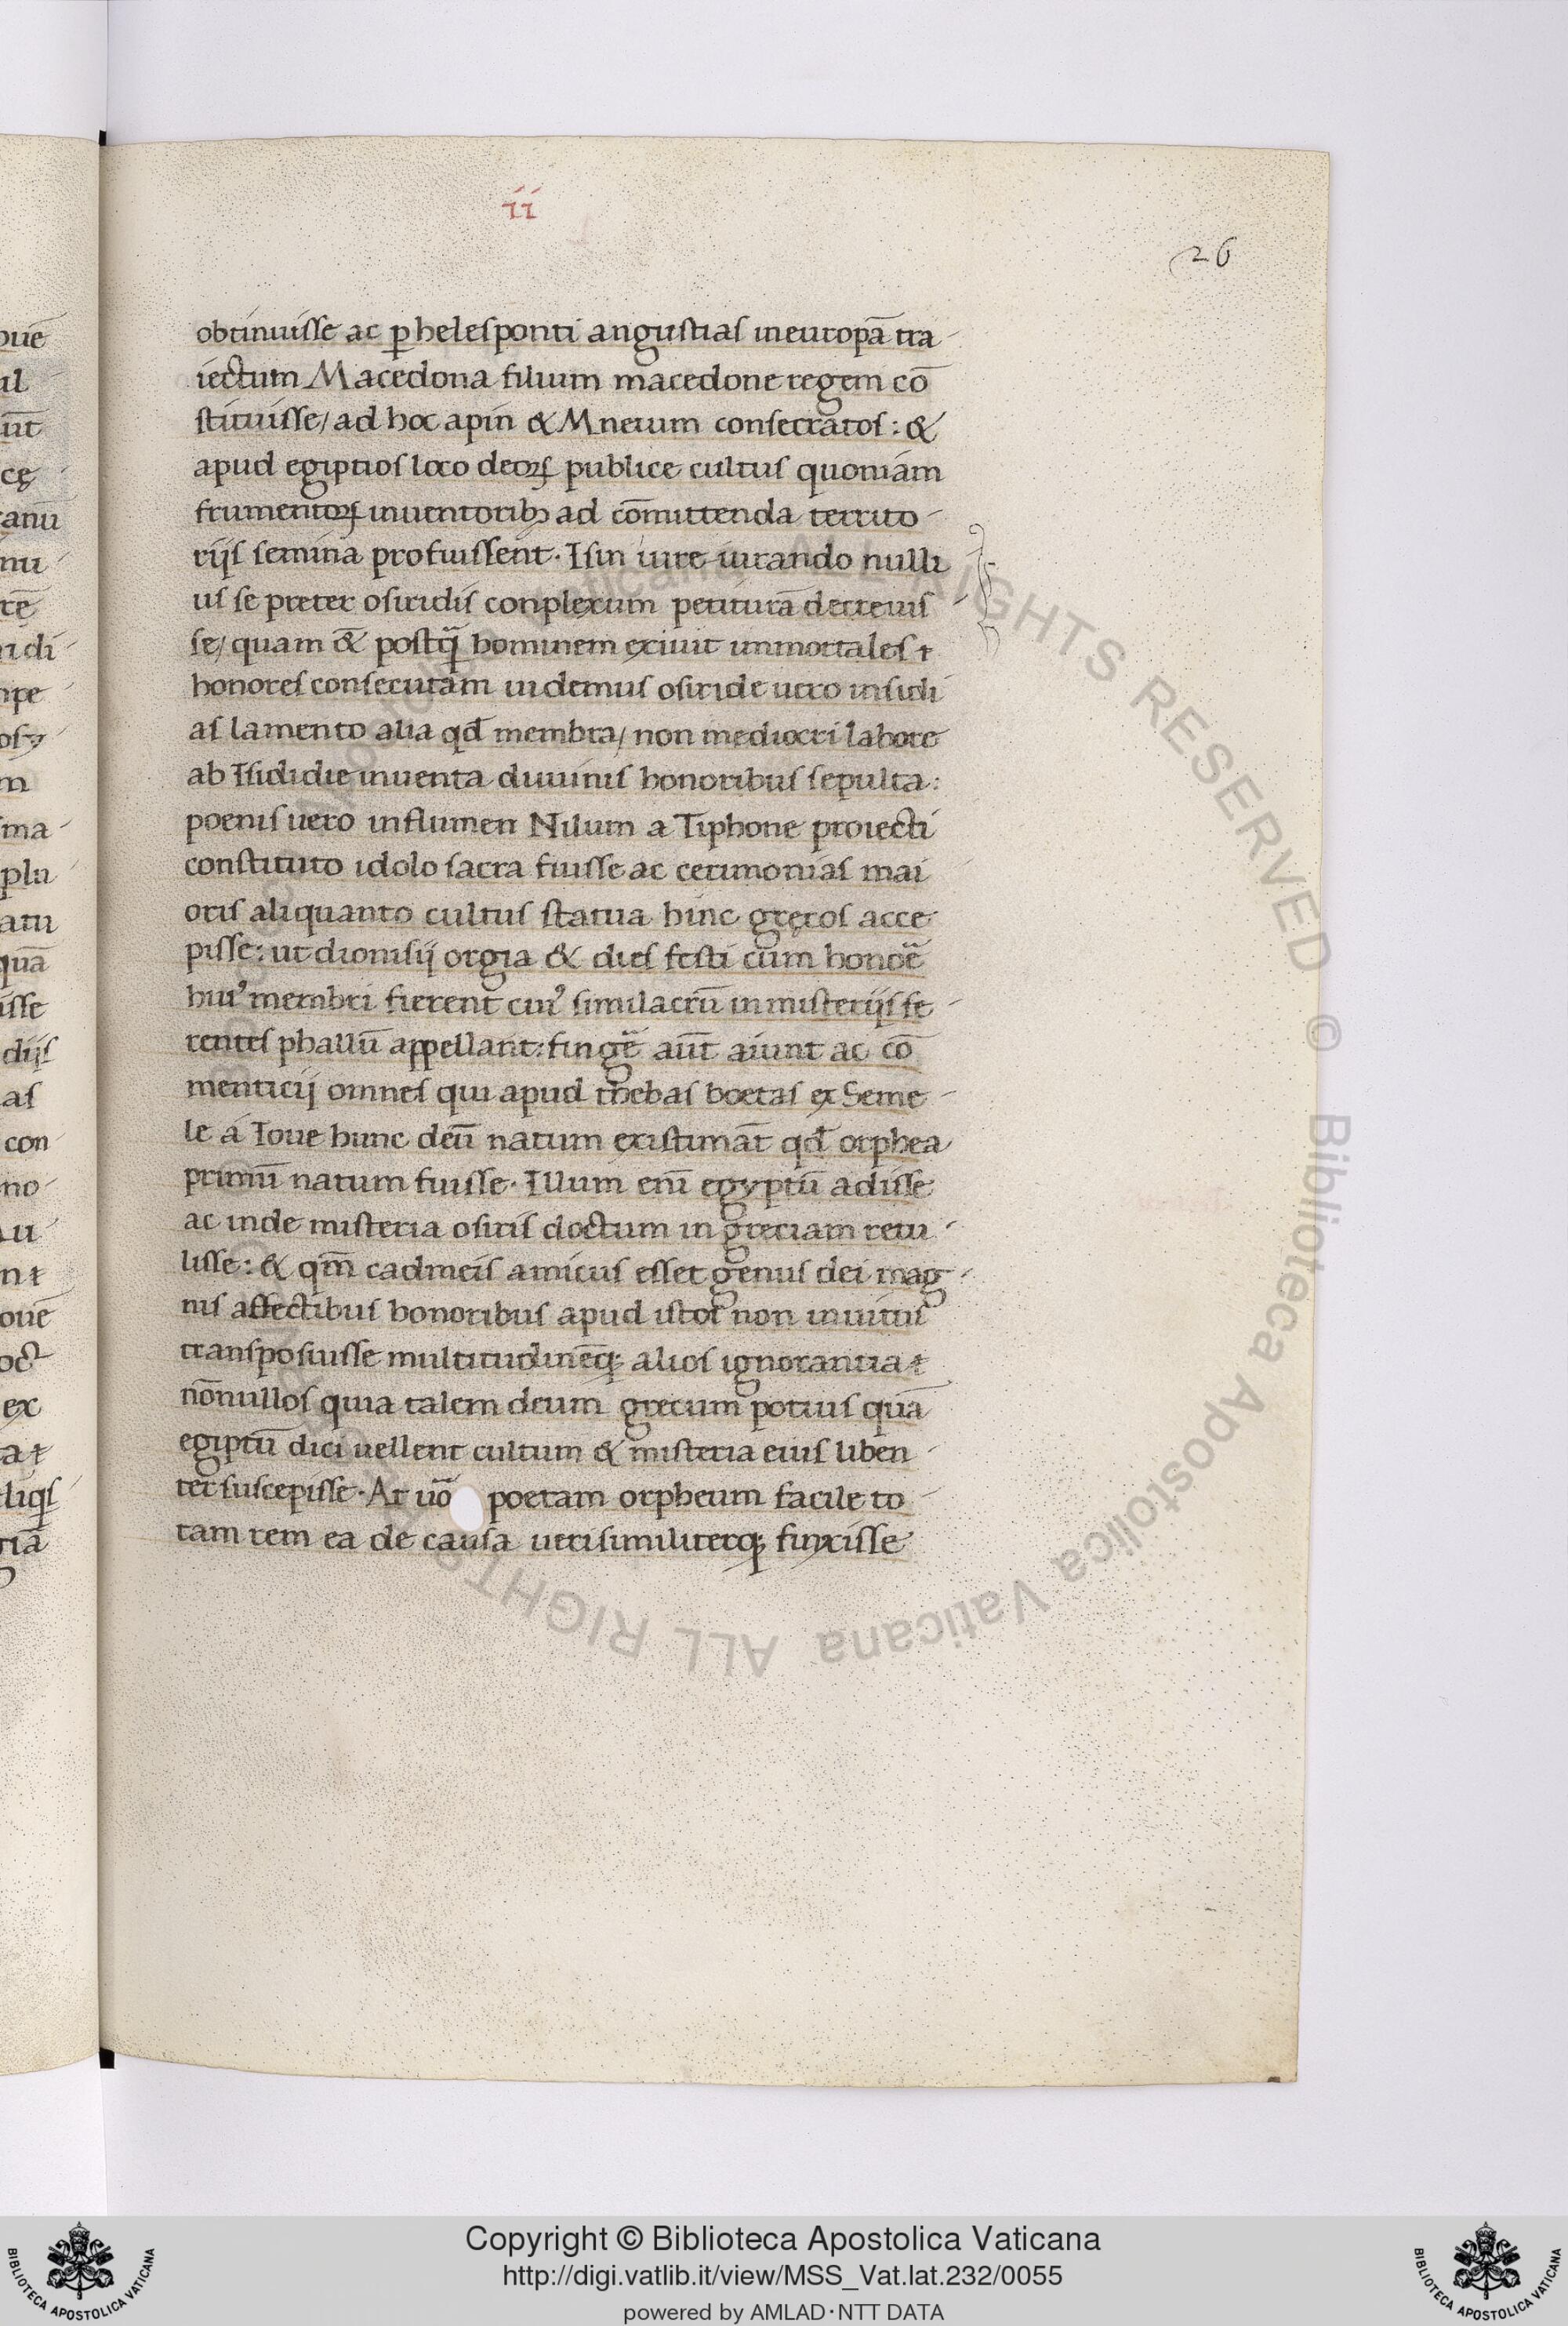 ii
26
obtinuisse ac ꝑ helesponti angustias in europā tra-
iectum Macedona filium macedone regem cō
stituisse/ ad hoc apin & Mneuum consecratos: &
apud egiptios loco deoꝝ publice cultus quoniam
frumentoꝝ inuentoribꝫ ad cōmittenda territo-
rijs semina profuissent. Isin iure-iurando nulli
us se preter osiridis conplexum petiturā decreuis-
se/ quam & postq̄ hominem exiuit immortales
honores consecutam uidemus osiride uero insidi
as lamento alia qd̄ membra/ non mediocri labore
ab Isididie inuenta diuinis honoribus sepulta:
poenis uero in flumen Nilum a Tiphone proiecti
constituto idolo sacra fuisse ac cerimonias mai
oris aliquanto cultus statua hinc gręcos acce-
pisse: ut dionisij orgia & dies festi cum honoē
huiꝰ membri fierent cuiꝰ similacrū in misterijs fe-
rentes phallū appellant: fingē aūt aiunt ac cō
menticij omnes qui apud thebas boetas ex Seme-
le á Ioue hunc deū natum existimāt qd̄ orphea
primū natum fuisse. Illum enī egyptū adisse
ac inde misteria osiris doctum in greciam retu-
lisse: & qm̄ cadmeis amicus esset genus dei mag-
nis affectibus honoribus apud istos non inuitus
transposuisse multitudinēqꝫ alios ignorantia
nōnullos quia talem deum grecum potius quā
egiptū dici uellent cultum & misteria eius liben-
ter suscepisse. At uō poetam orpheum facile to
tam rem ea de causa uerisimiliterqꝫ finxisse
Copyright © Biblioteca Apostolica Vaticana
http://digi.vatlib.it/view/MSS_Vat.lat.232/0055
powered by AMLAD·NTT DATA